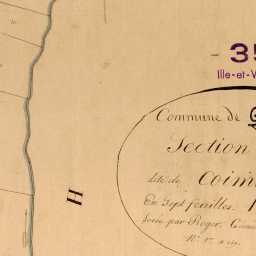 35
Ille-et-V
Commune de
Section
dite de Coim
En Sept feuilles.
Levée par Roger, Géom
H